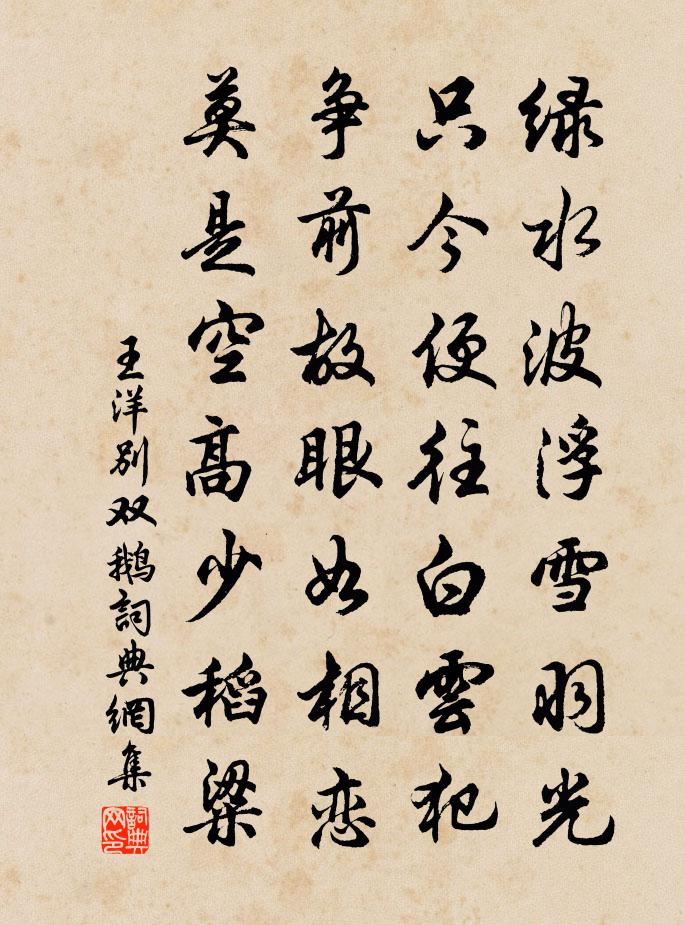 绿水波浮雪羽光
只今便往白雲犯
争前故眼如相恋
莫是空高少稻粱
王洋别双鹅詞典網集
詞典网印